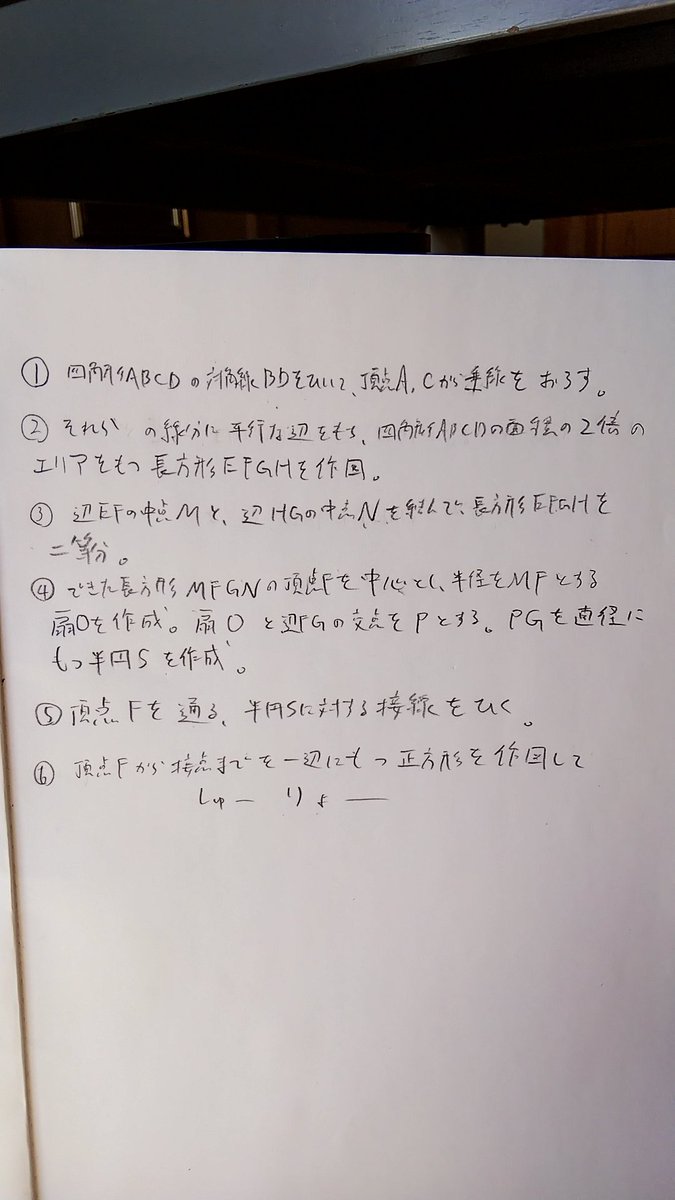 ① 四角形ABCDの対角線BDをひいて、頂点A,Cから垂線をおろす。
② それらの線分に平行な辺をもち、四角形ABCDの面積の2倍の
エリアをもつ長方形EFGHを作図。
③ 辺EFの中点Mと、辺HGの中点Nを結んで、長方形EFGHを
二等分。
④ できた長方形MFGNの頂点Fを中心とし、半径をMFとする
扇Oを作成。扇Oと辺FGの交点をPとする。PGを直径に
もつ半円Sを作成。
⑤ 頂点Fを通る、半円Sに対する接線をひく。
⑥ 頂点Fから接点までを一辺にもつ正方形を作図して
しゅーりょー